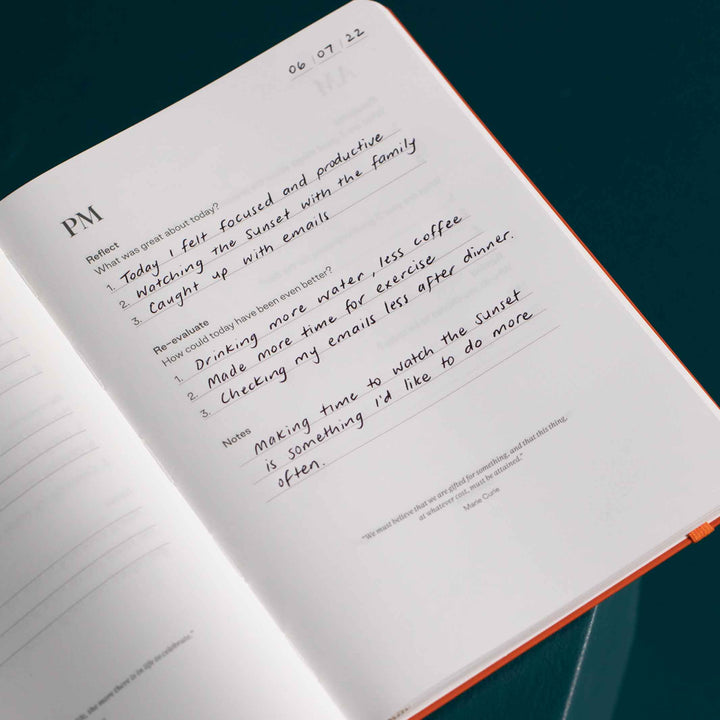 06 / 07 / 22
PM
Reflect
What was great about today?
1. Today I felt focused and productive
2. Watching the sunset with the family
3. Caught up with emails
Re-evaluate
How could today have been even better?
1. Drinking more water, less coffee
2. Made more time for exercise
3. Checking my emails less after dinner.
Notes
Making time to watch the sunset
is something i'd like to do more
often.
"We must believe that we are gifted for something, and that this thing,
at whatever cost, must be attained."
Marie Curie
the more there is in life to celebrate."